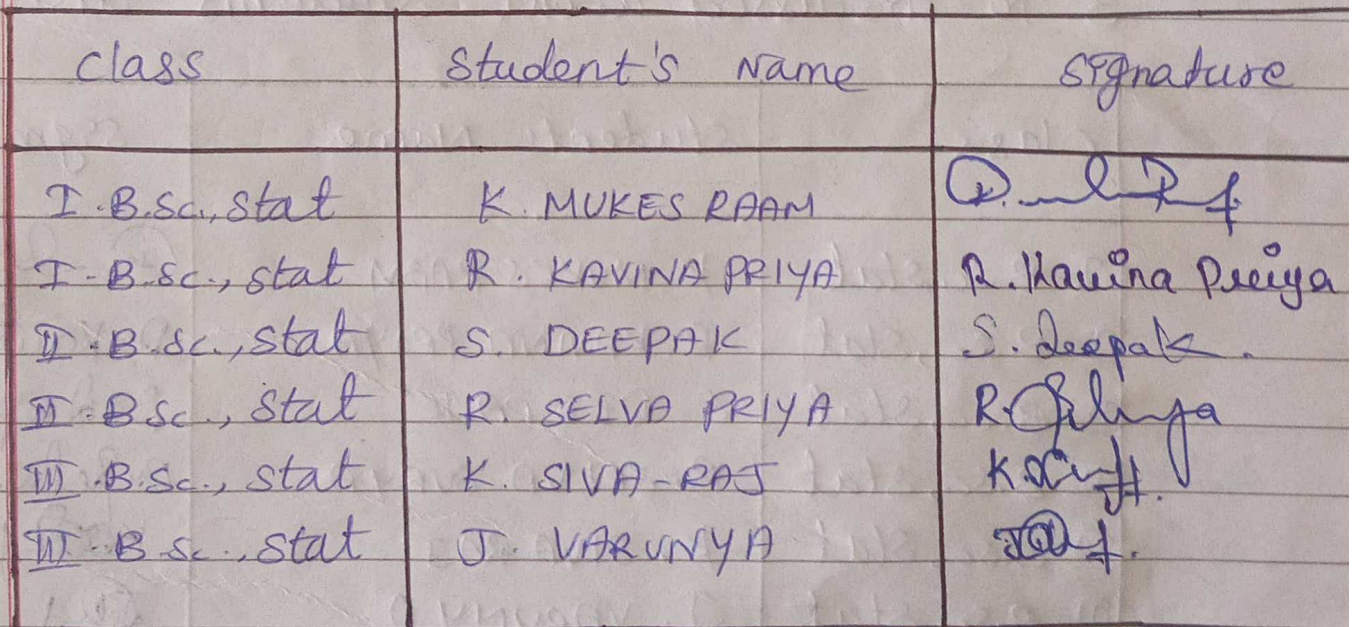 Class Student's Name Signature
I. B.Sc., Stat K. MUKES RAAM
I. B.Sc., Stat R. KAVINA PRIYA R. Kavina Priya
II. B.Sc., Stat S. DEEPAK S. Deepak.
II. B.Sc., Stat R. SELVA PRIYA R.
III. B.Sc., Stat K. SIVA-RAJ K.
III. B.Sc., Stat J. VARUNYA